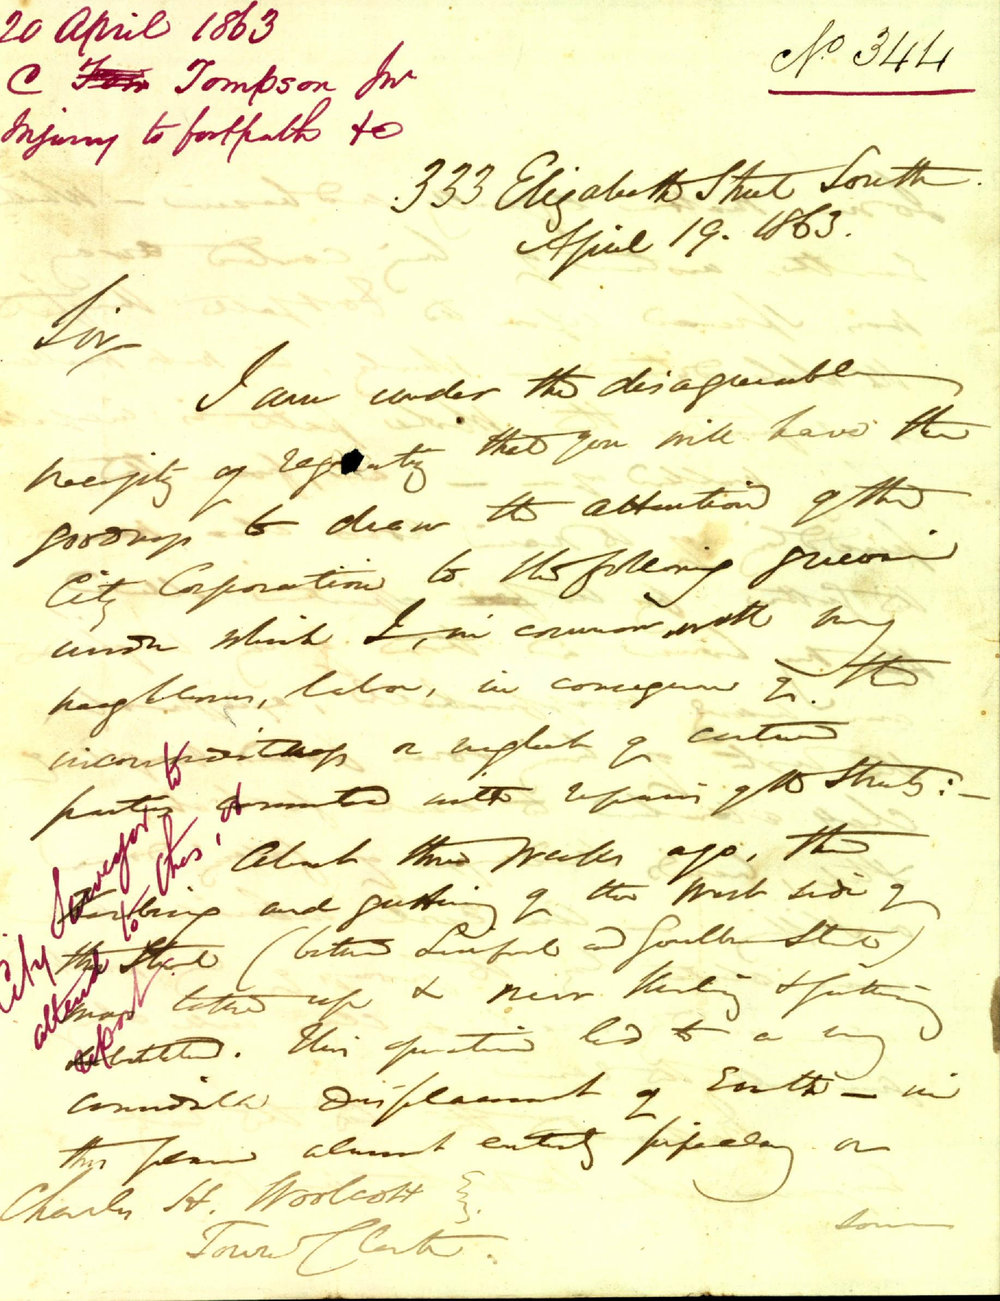 20 April 1863
C Tompson Jnr
Injury to footpath &c
No. 344
333 Elizabeth Street South.
April 19. 1863.
Sir,
I am under the disagreeable
necessity of requesting that you will have the
goodness to draw the attention of the
City Corporation to the following grievance
under which I, in common with my
neighbours, labor, in consequence of the
or neglect of certain
parties connected with repairs of the Streets:—
About three weeks ago, the
Kerbing and guttering of the West side of
the Street (between Liverpool and Goulburn Streets)
was taken up & new Kerbing & guttering
substituted. This operation led to a very
considerable displacement of Earth — in
this place almost entirely pipeclay or
some
City Surveyor to
attend to this, &
report
Charles H. Woolcott
Town Clerk.